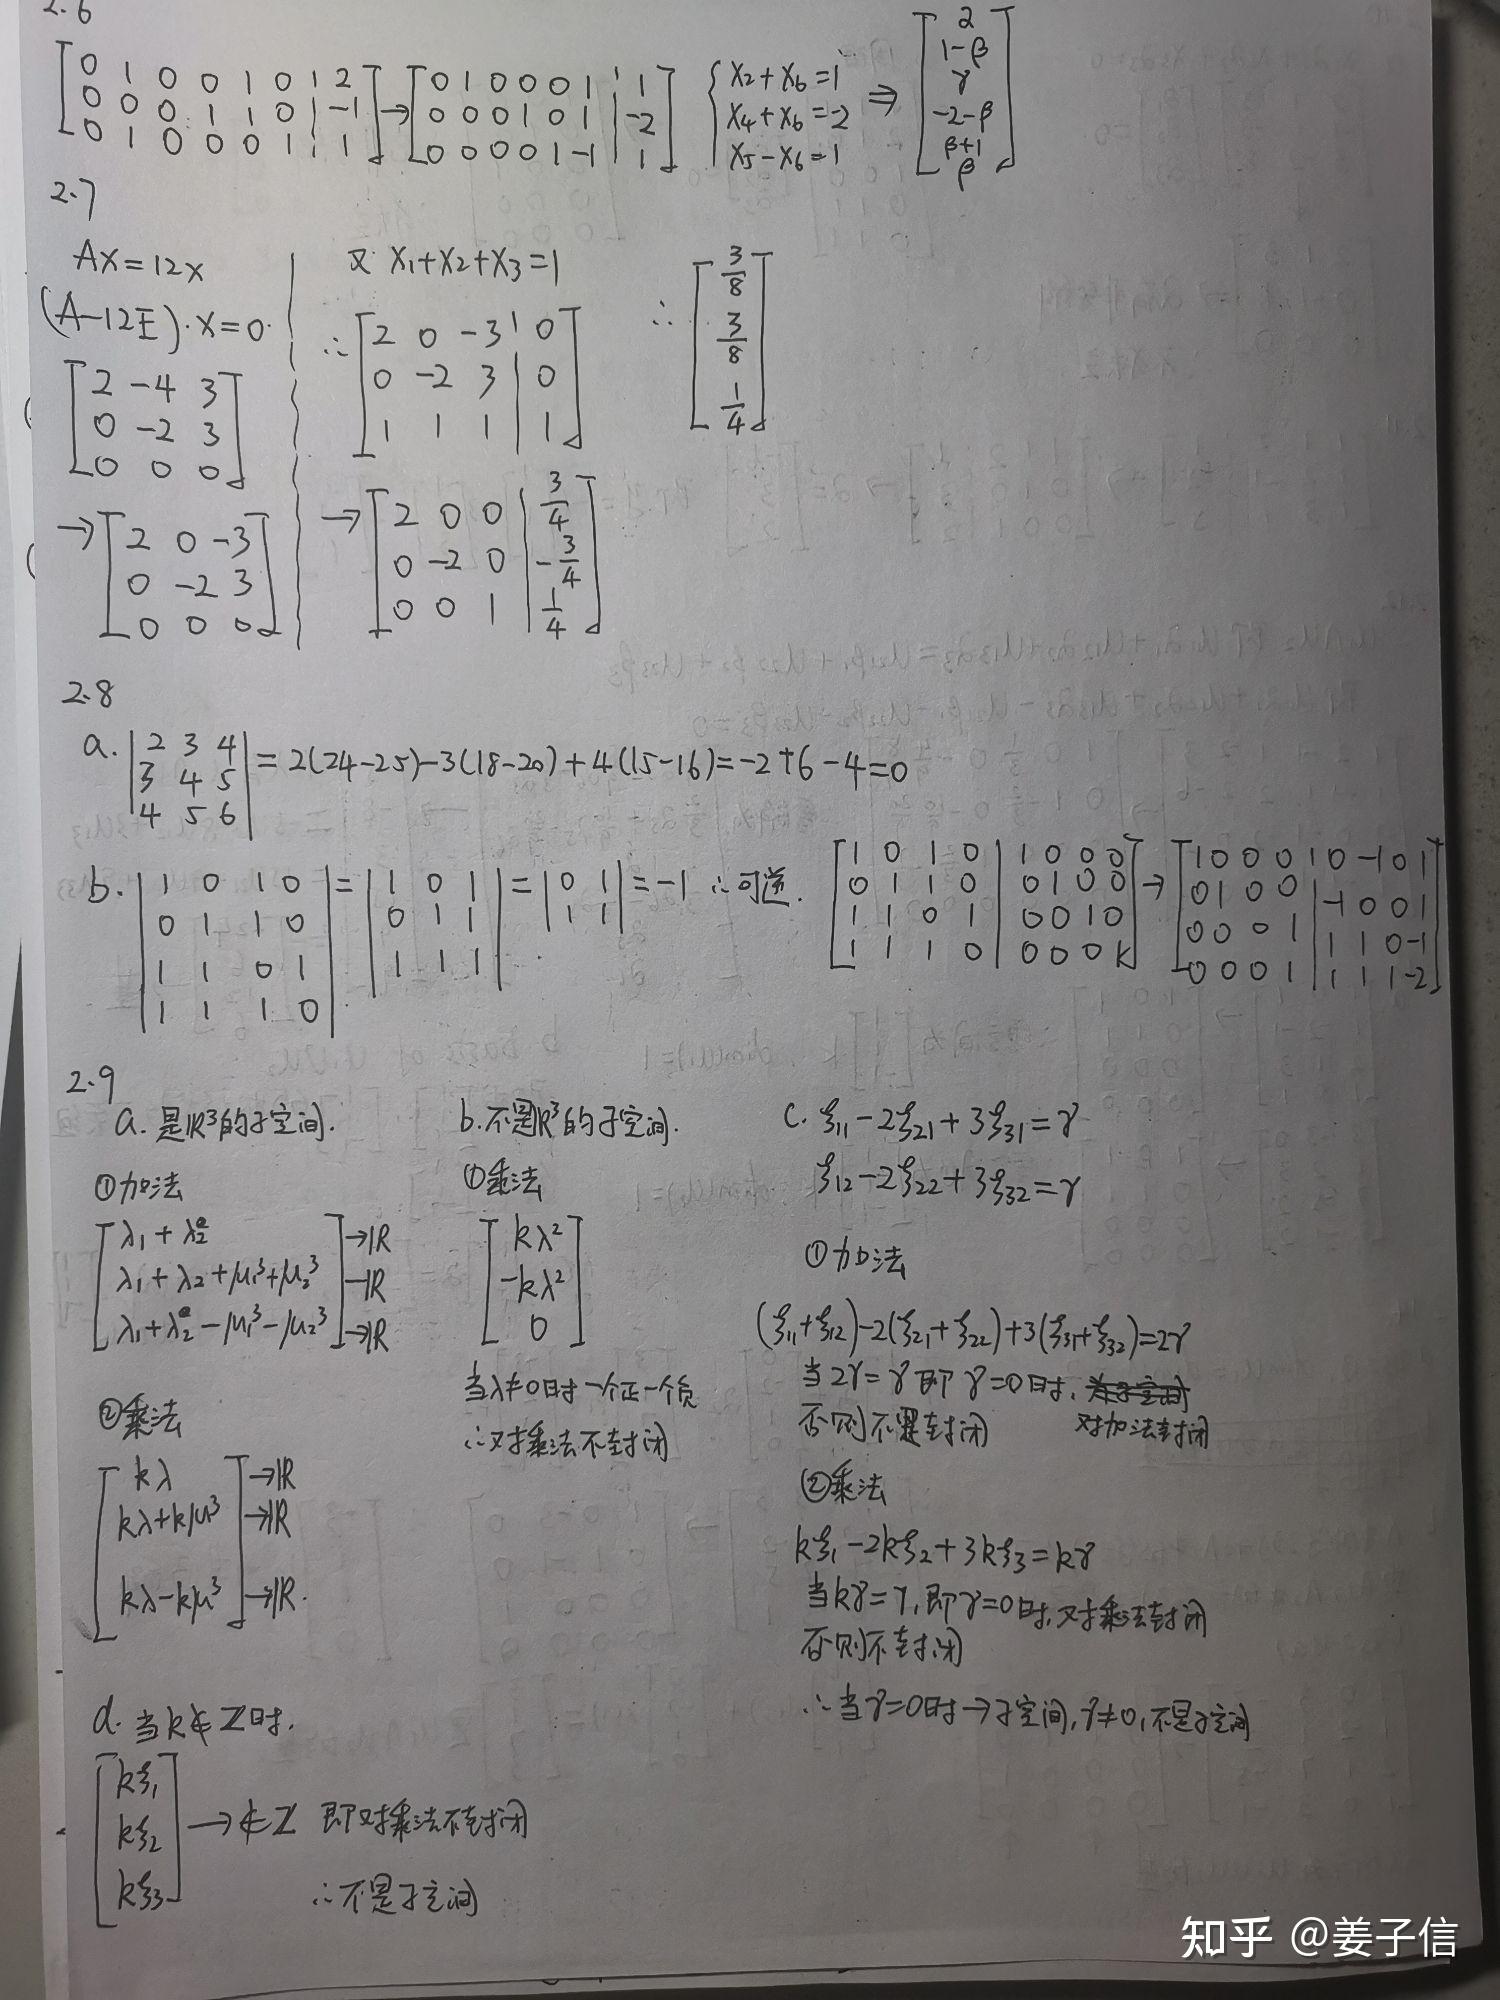 2.6
[0 1 0 0 1 0 | 2
0 0 0 1 1 0 | -1
0 1 0 0 0 1 | 1] → [0 1 0 0 0 1 | 1
0 0 0 1 0 1 | -2
0 0 0 0 1 -1 | 1] { x2+x6=1
x4+x6=-2
x5-x6=1 ⇒ [2
1-β
γ
-2-β
β+1
β]
2.7
Ax=12x
(A-12E)·x=0
[2 -4 3
0 -2 3
0 0 0]
→ [2 0 -3
0 -2 3
0 0 0]
又 x1+x2+x3=1
∴ [2 0 -3 | 0
0 -2 3 | 0
1 1 1 | 1]
→ [2 0 0 | 3/4
0 -2 0 | -3/4
0 0 1 | 1/4]
∴ [3/8
3/8
1/4]
2.8
a. |2 3 4
3 4 5
4 5 6| = 2(24-25)-3(18-20)+4(15-16)=-2+6-4=0
b. |1 0 1 0
0 1 1 0
1 1 0 1
1 1 1 0| = |1 0 1
0 1 1
1 1 1| = |0 1
1 1| = -1 ∴可逆.
[1 0 1 0 | 1 0 0 0
0 1 1 0 | 0 1 0 0
1 1 0 1 | 0 0 1 0
1 1 1 0 | 0 0 0 k] → [1 0 0 0 | 0 -1 0 1
0 1 0 0 | -1 0 0 1
0 0 0 1 | 1 1 0 -1
0 0 0 1 | 1 1 1 -2]
2.9
a. 是ℝ³的子空间.
①加法
[λ1+λ2
λ1+λ2+μ1³+μ2³
λ1+λ2-μ1³-μ2³] →ℝ
→ℝ
→ℝ
②乘法
[kλ
kλ+kμ³
kλ-kμ³] →ℝ
→ℝ
→ℝ.
b. 不是ℝ³的子空间.
①乘法
[kλ²
-kλ²
0]
当λ≠0时一个正一个负
∴对乘法不封闭
c. ξ11-2ξ21+3ξ31=γ
ξ12-2ξ22+3ξ32=γ
①加法
(ξ11+ξ12)-2(ξ21+ξ22)+3(ξ31+ξ32)=2γ
当2γ=γ即γ=0时,
对加法封闭
否则不是封闭
②乘法
kξ1-2kξ2+3kξ3=kγ
当kγ=γ,即γ=0时,对乘法封闭
否则不封闭
∴当γ=0时→子空间,γ≠0,不是子空间
d. 当k∉Z时.
[kξ1
kξ2
kξ3] → ∉Z 即对乘法不封闭
∴不是子空间
知乎 @姜子信